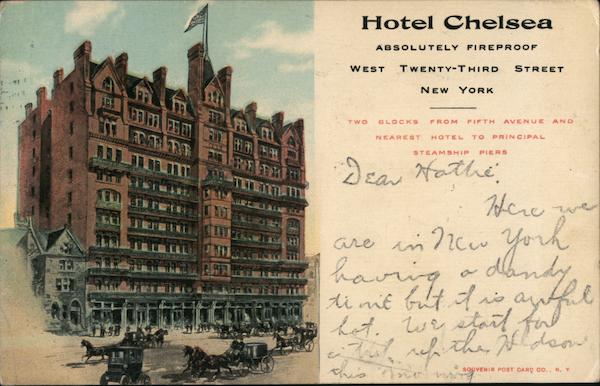 Hotel Chelsea
ABSOLUTELY FIREPROOF
WEST TWENTY-THIRD STREET
NEW YORK
TWO BLOCKS FROM FIFTH AVENUE AND
NEAREST HOTEL TO PRINCIPAL
STEAMSHIP PIERS
Dear Hattie.
Here we
are in New York
having a dandy
time but it is awful
hot. We start for
a trip up the Hudson
this morning
SOUVENIR POST CARD CO., N.Y.